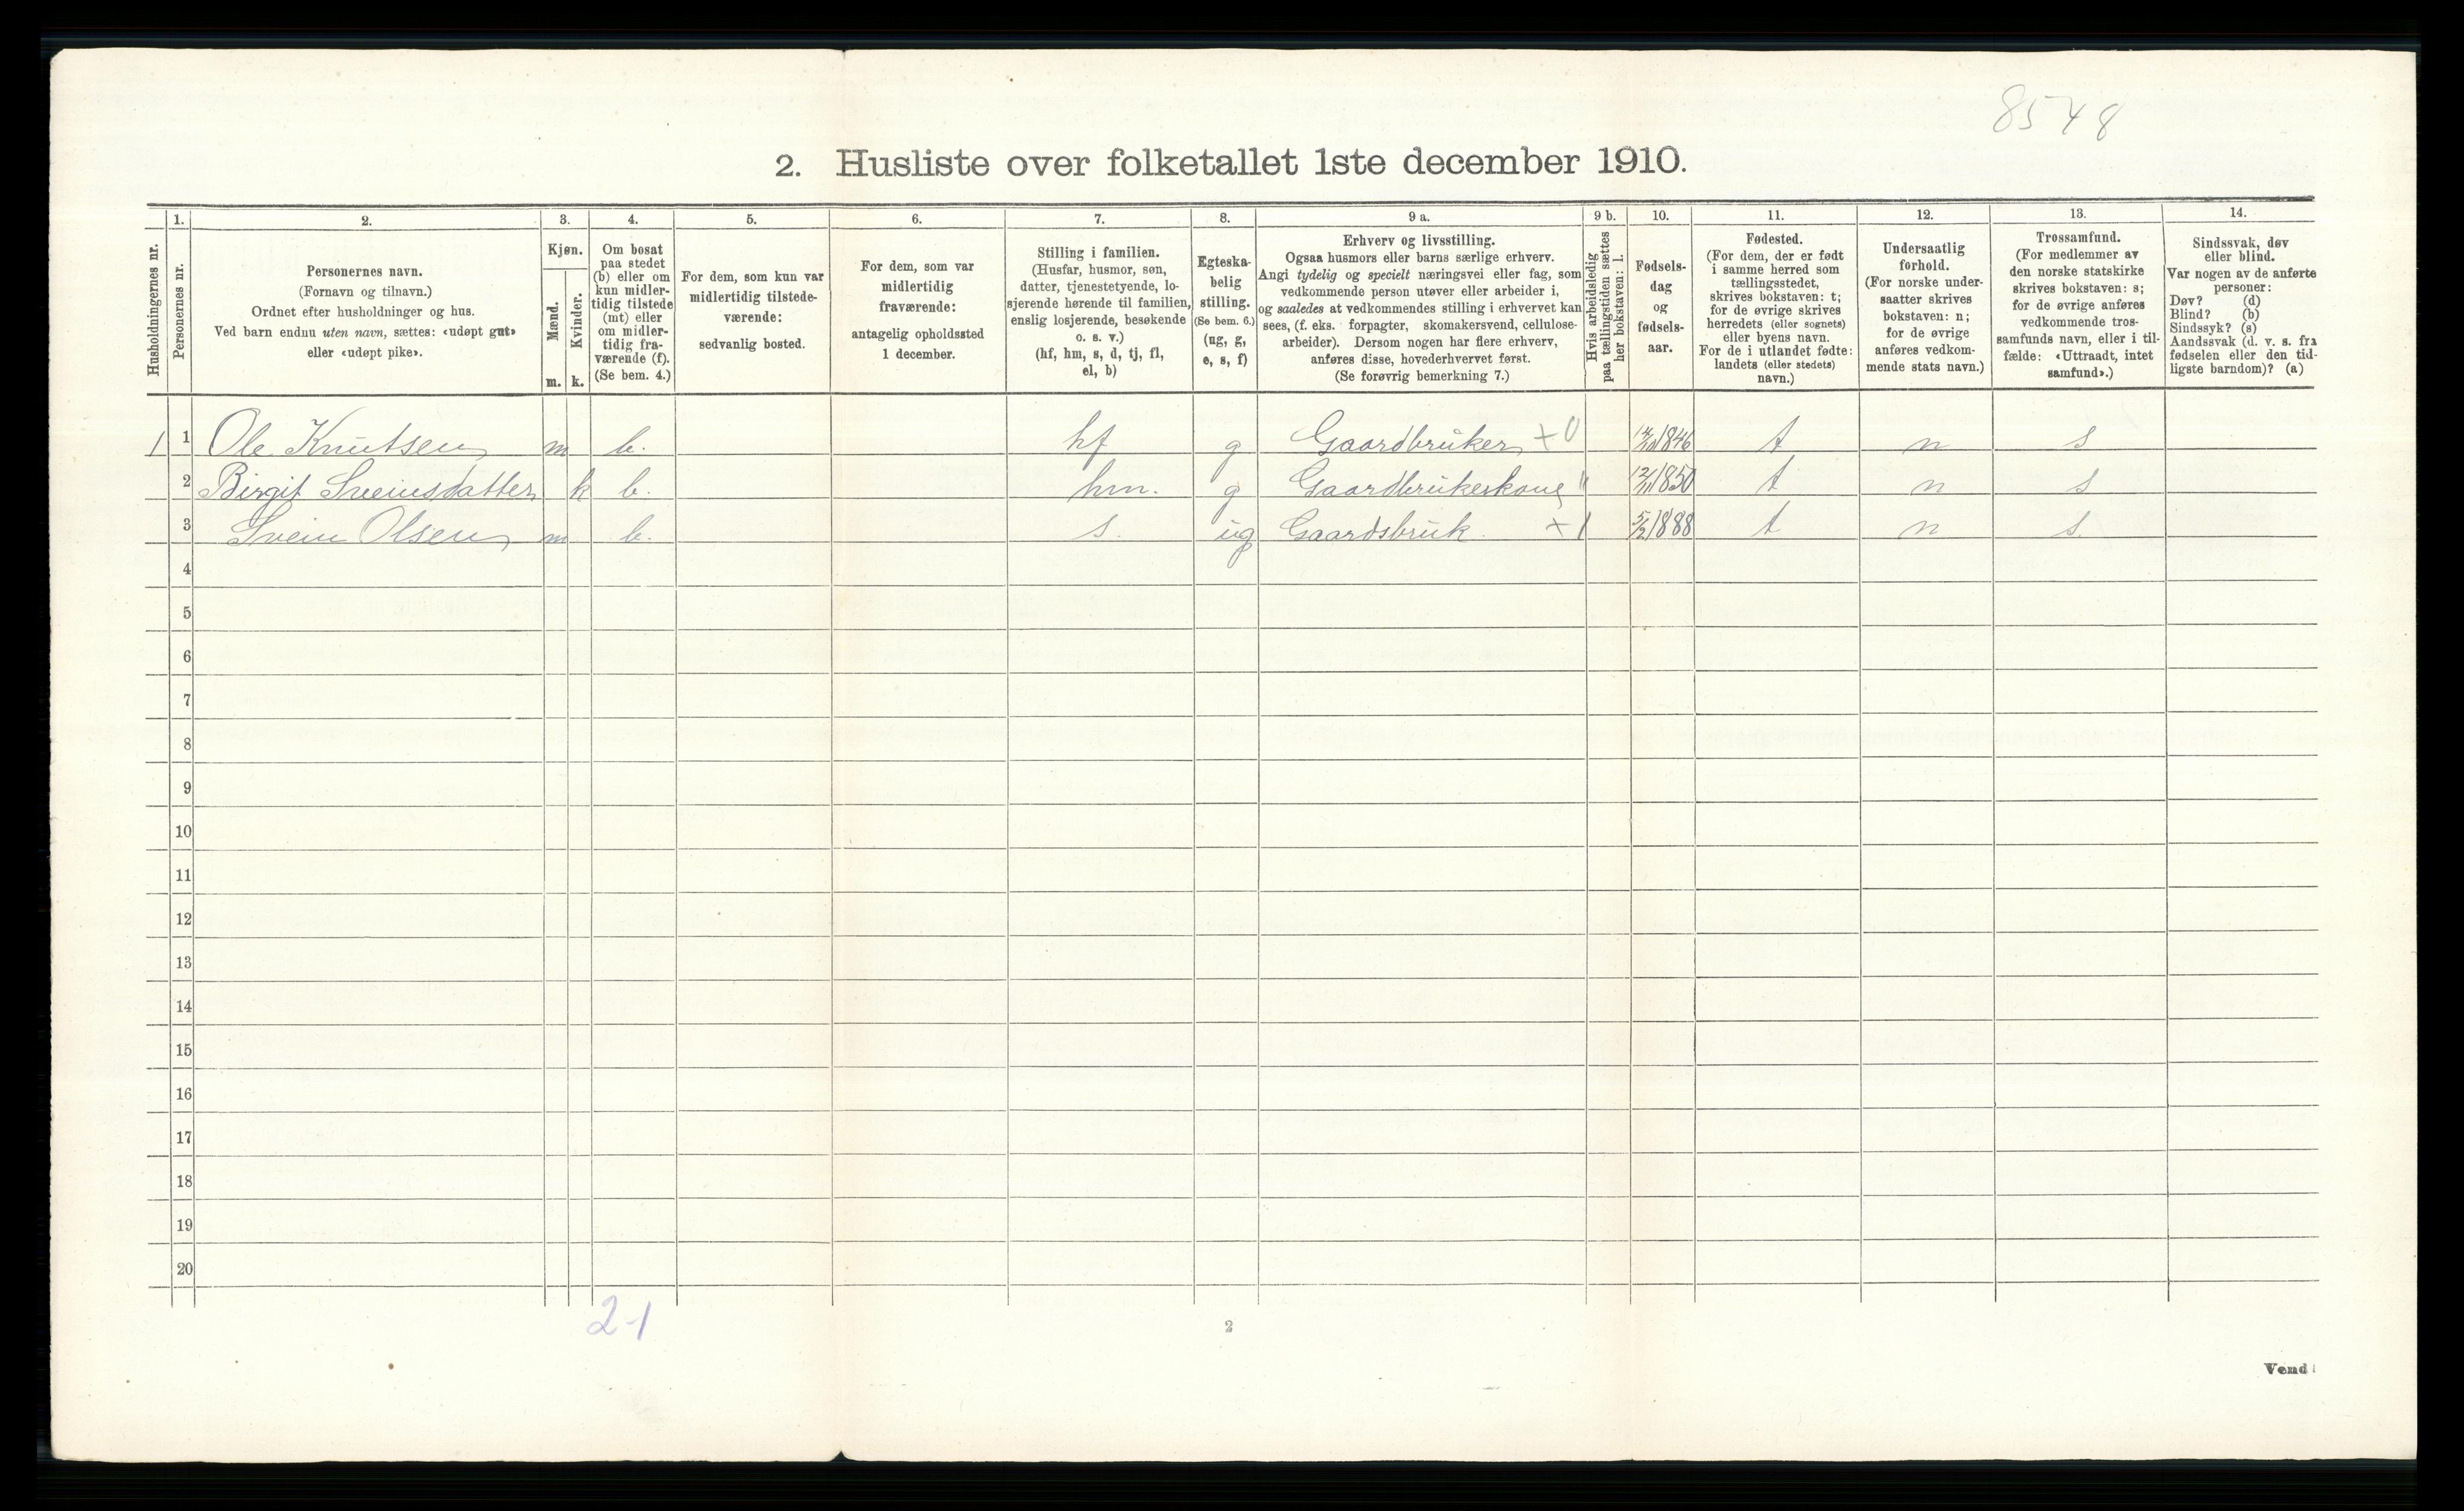 8548
2. Husliste over folketallet 1ste december 1910.
1. 2. 3. 4. 5. 6. 7. 8. 9 a. 9 b. 10. 11. 12. 13. 14.
Husholdningernes nr.
Personernes nr.
Personernes navn.
(Fornavn og tilnavn.)
Ordnet efter husholdninger og hus.
Ved barn endnu uten navn, sættes: «udøpt gut»
eller «udøpt pike».
Kjøn.
Mænd.
Kvinder.
m. k.
Om bosat
paa stedet
(b) eller om
kun midler-
tidig tilstede
(mt) eller
om midler-
tidig fra-
værende (f).
(Se bem. 4.)
For dem, som kun var
midlertidig tilstede-
værende:
sedvanlig bosted.
For dem, som var
midlertidig
fraværende:
antagelig opholdssted
1 december.
Stilling i familien.
(Husfar, husmor, søn,
datter, tjenestetyende, lo-
sjerende hørende til familien,
enslig losjerende, besøkende
o. s. v.)
(hf, hm, s, d, tj, fl,
el, b)
Egteska-
belig
stilling.
(Se bem. 6.)
(ug, g,
e, s, f)
Erhverv og livsstilling.
Ogsaa husmors eller barns særlige erhverv.
Angi tydelig og specielt næringsvei eller fag, som
vedkommende person utøver eller arbeider i,
og saaledes at vedkommendes stilling i erhvervet kan
sees, (f. eks. forpagter, skomakersvend, cellulose-
arbeider). Dersom nogen har flere erhverv,
anføres disse, hovederhvervet først.
(Se forøvrig bemerkning 7.)
Hvis arbeidsledig
paa tællingstiden sættes
her bokstaven: l.
Fødsels-
dag
og
fødsels-
aar.
Fødested.
(For dem, der er født
i samme herred som
tællingsstedet,
skrives bokstaven: t;
for de øvrige skrives
herredets (eller sognets)
eller byens navn.
For de i utlandet fødte:
landets (eller stedets)
navn.)
Undersaatlig
forhold.
(For norske under-
saatter skrives
bokstaven: n;
for de øvrige
anføres vedkom-
mende stats navn.)
Trossamfund.
(For medlemmer av
den norske statskirke
skrives bokstaven: s;
for de øvrige anføres
vedkommende tros-
samfunds navn, eller i til-
fælde: «Uttraadt, intet
samfund».)
Sindssvak, døv
eller blind.
Var nogen av de anførte
personer:
Døv? (d)
Blind? (b)
Sindssyk? (s)
Aandssvak (d. v. s. fra
fødselen eller den tid-
ligste barndom)? (a)
1 1 Ole Knutsen m b. hf g Gaardbruker +0 1846 t n s
2 Birgit Sveinsdatter k b. hm. g Gaardbrukerkone " 1850 t n s
3 Svein Olsen m b. s. ug Gaardsbruk. +1 5/2 1888 t n s.
4
5
6
7
8
9
10
11
12
13
14
15
16
17
18
19
20
2-1
2
Vend!